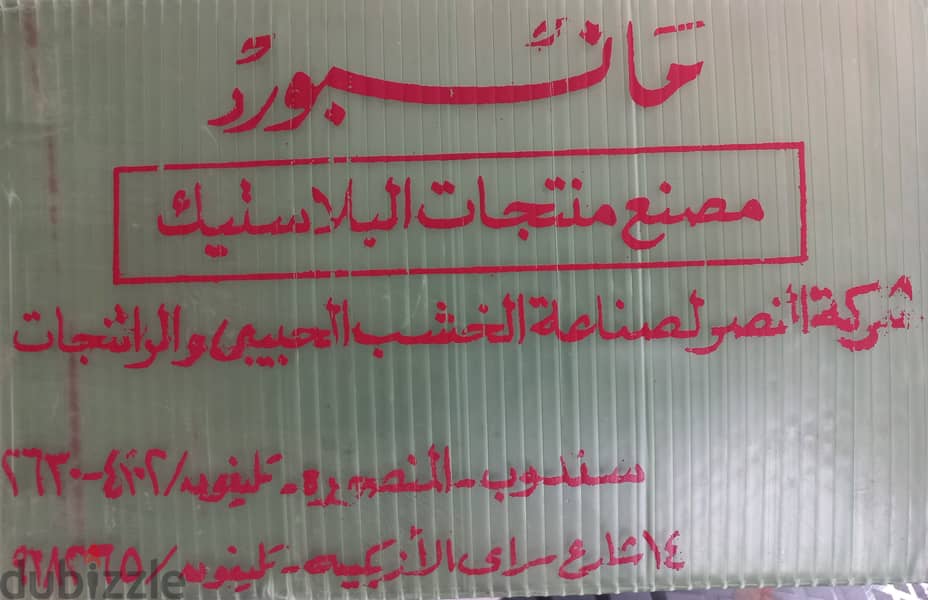 مانسبورد
مصنع منتجات البلاستيك
شركة النصر لصناعة الخشب الحبيبى والراتنجات
سندوب - المنصورة - تليفون /
١٤ شارع سراى الأزبكية - تليفون /
dubizzle